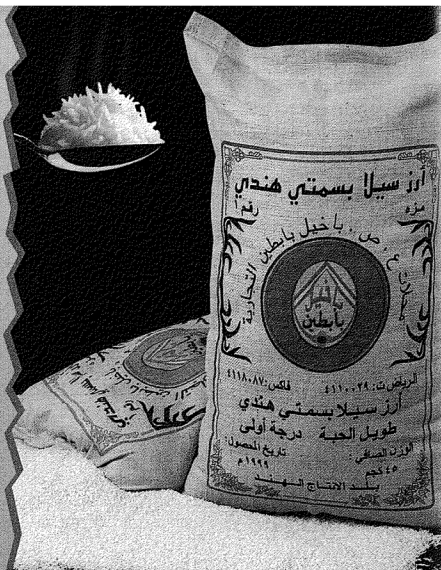 أرز سيلا بسمتي هندي
مزه
رقم ١
محلات ع . ص . باخيل بابطين التجارية
باخيل
بابطين
الرياض ت: ٤١١٠٠٢٩ فاكس: ٤١١٨٠٨٧
أرز سيلا بسمتي هندي
طويل الحبة درجة أولى
الوزن الصافي تاريخ المحصول:
٤٥ كجم ١٩٩٩م
بلد الانتاج الهند